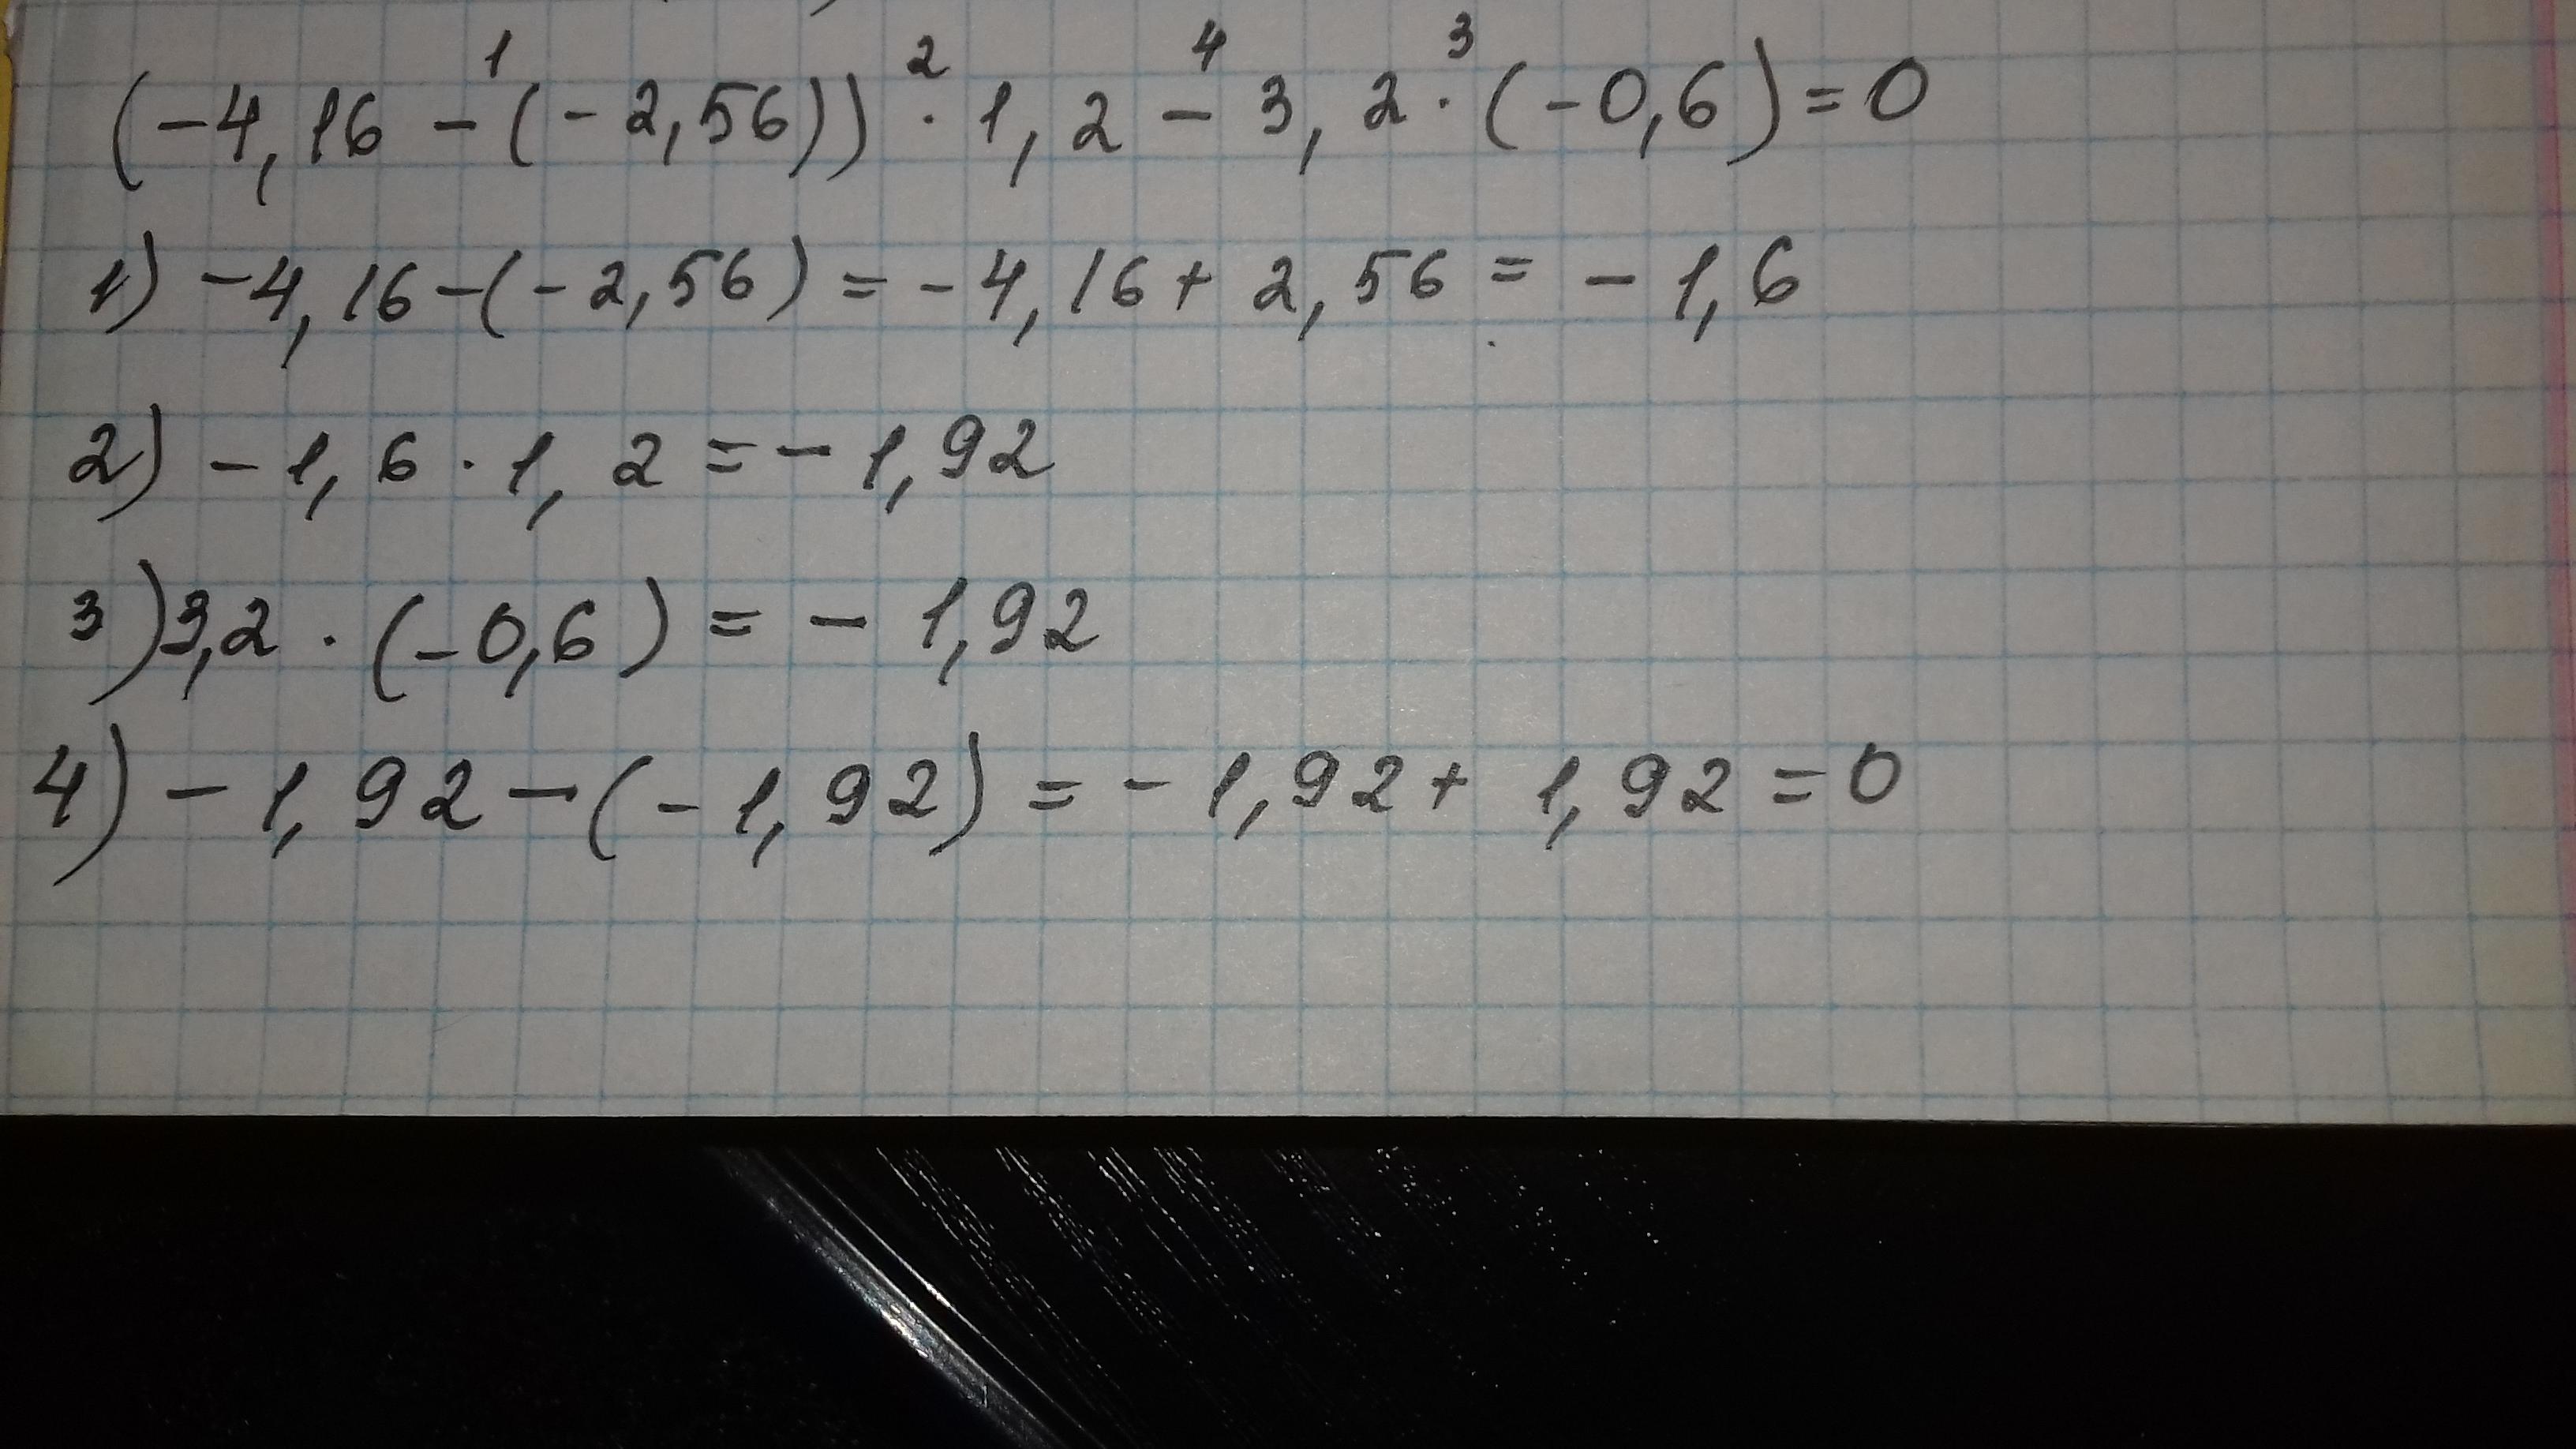 1 2 4 3
(-4,16 - (-2,56)) · 1,2 - 3,2 · (-0,6) = 0
1) -4,16 - (-2,56) = -4,16 + 2,56 = -1,6
2) -1,6 · 1,2 = -1,92
3) 3,2 · (-0,6) = -1,92
4) -1,92 - (-1,92) = -1,92 + 1,92 = 0